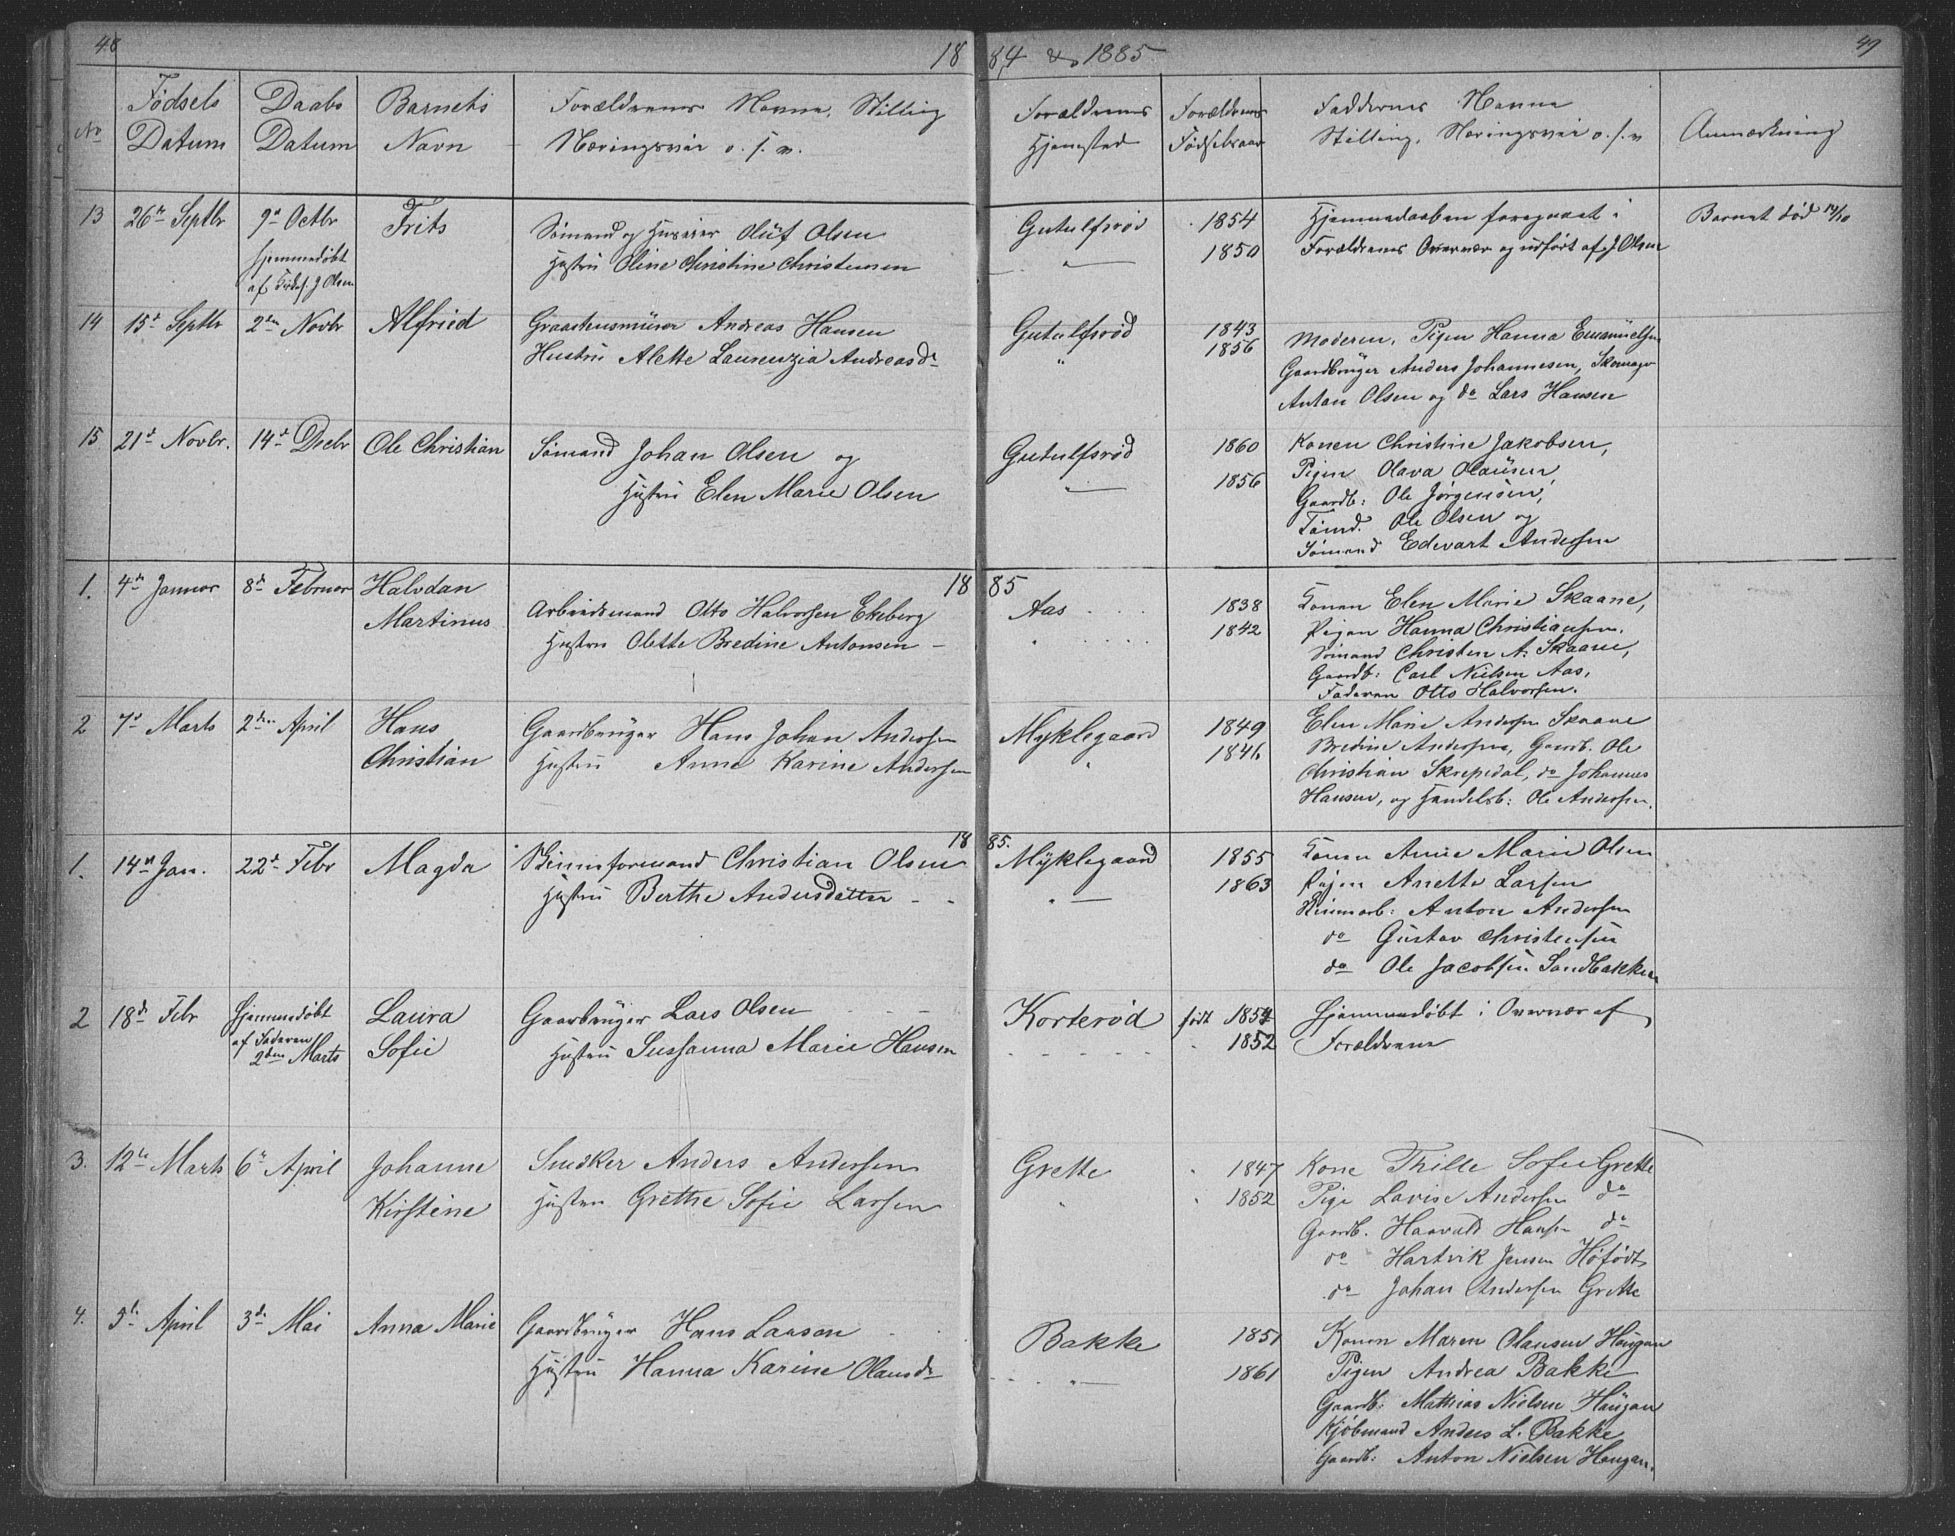 48
18
84 & 1885
49
No
Fødsels Datum
Daabs Datum
Barnets Navn
Forældrenes Navne, Stilling
Næringsvei o. s. v.
Forældrenes Hjemsted
Forældrenes Fødselsaar
Faddernes Navne
Stilling, Næringsvei o. s. v
Anmærkning
13 26de Septbr 9de Octbr Frits Sømand og Huseier Oluf Olsen Gutulfsrød 1854 Hjemmedaaben foregaaet i Barnet død 12/10
hjemmedøbt Hustru Oline Christine Christensen " 1850 Forældrenes Overvær og udført af J Olsen
af J Olsen
14 15de Septbr 2den Novbr Alfried Graastensmurer Andreas Hansen Gutulfsrød 1843 Moderen, Pigen Hanna Emanuelsen
Hustru Alette Laurenzia Andreasdr " 1856 Gaardbruger Anders Johannesen, Skomager
Anton Olsen og do Lars Hansen
15 21de Novbr. 14de Decbr Ole Christian Sømand Johan Olsen og Gutulfsrød 1860 Konen Christine Jakobsen,
Hustru Elen Marie Olsen " 1856 Pigen Olava Olausen,
Gaardb: Ole Jørgensen,
Tømd. Ole Olsen og
Sømand Edevart Andersen
18 85
1. 4de Januar 8de Februar Halvdan Arbeidsmand Otto Halvorsen Ekeberg Aas 1838 Konen Elen Marie Skaane,
Martinus Hustru Olette Bredine Antonsen " 1842 Pigen Hanna Christiansen.
Sømand Christen A. Skaane,
Gaardb: Carl Nielsen Aas,
Faderen Otto Halvorsen.
2 7de Marts 2den April Hans Gaardbruger Hans Johan Andersen Myklegaard 1849 Elen Marie Andersen Skaane
Christian Hustru Anne Karine Andersen " 1846 Bredine Andersen, Gaardb. Ole
Christian Skrepidal, do Johannes
Hansen, og Handelsb: Ole Andersen.
18 85.
1. 14de Jan. 22de Febr Magda Stenformand Christian Olsen Myklegaard 1855 Konen Anne Marie Olsen
Hustru Berthe Andersdatter " 1863 Pigen Anette Larsen
Anton Andersen
do Gustav Christensen
do Ole Jacobsen Sandbakken
2 18de Febr Hjemmedøbt Laura Gaardbruger Lars Olsen Korterød født 1854 Hjemmedøbt i Overvær af
af Faderen Sofie Hustru Sussanna Marie Hansen 1852 Forældrene
2den Marts
3. 12te Marts 6te April Johanne Snedker Anders Andersen Grette 1847 Kone Thille Sofie Grette
Kirstine Hustru Grethe Sofie Larsen " 1852 Pige Lovise Andersen do
Gaardb. Haavald Hansen do
do Hartvik Jensen Høfødt
do Johan Andersen Grette
4. 5te April 3die Mai Anna Marie Gaardbruger Hans Larsen Bakke 1851 Konen Maren Olausen Haugan
Hustru Hanna Karine Olausdr " 1861 Pigen Andrea Bakke
Gaardb: Mathias Nielsen Haugan
Kjøbmand Anders L. Bakke
Gaardb: Anton Nielsen Haugan.